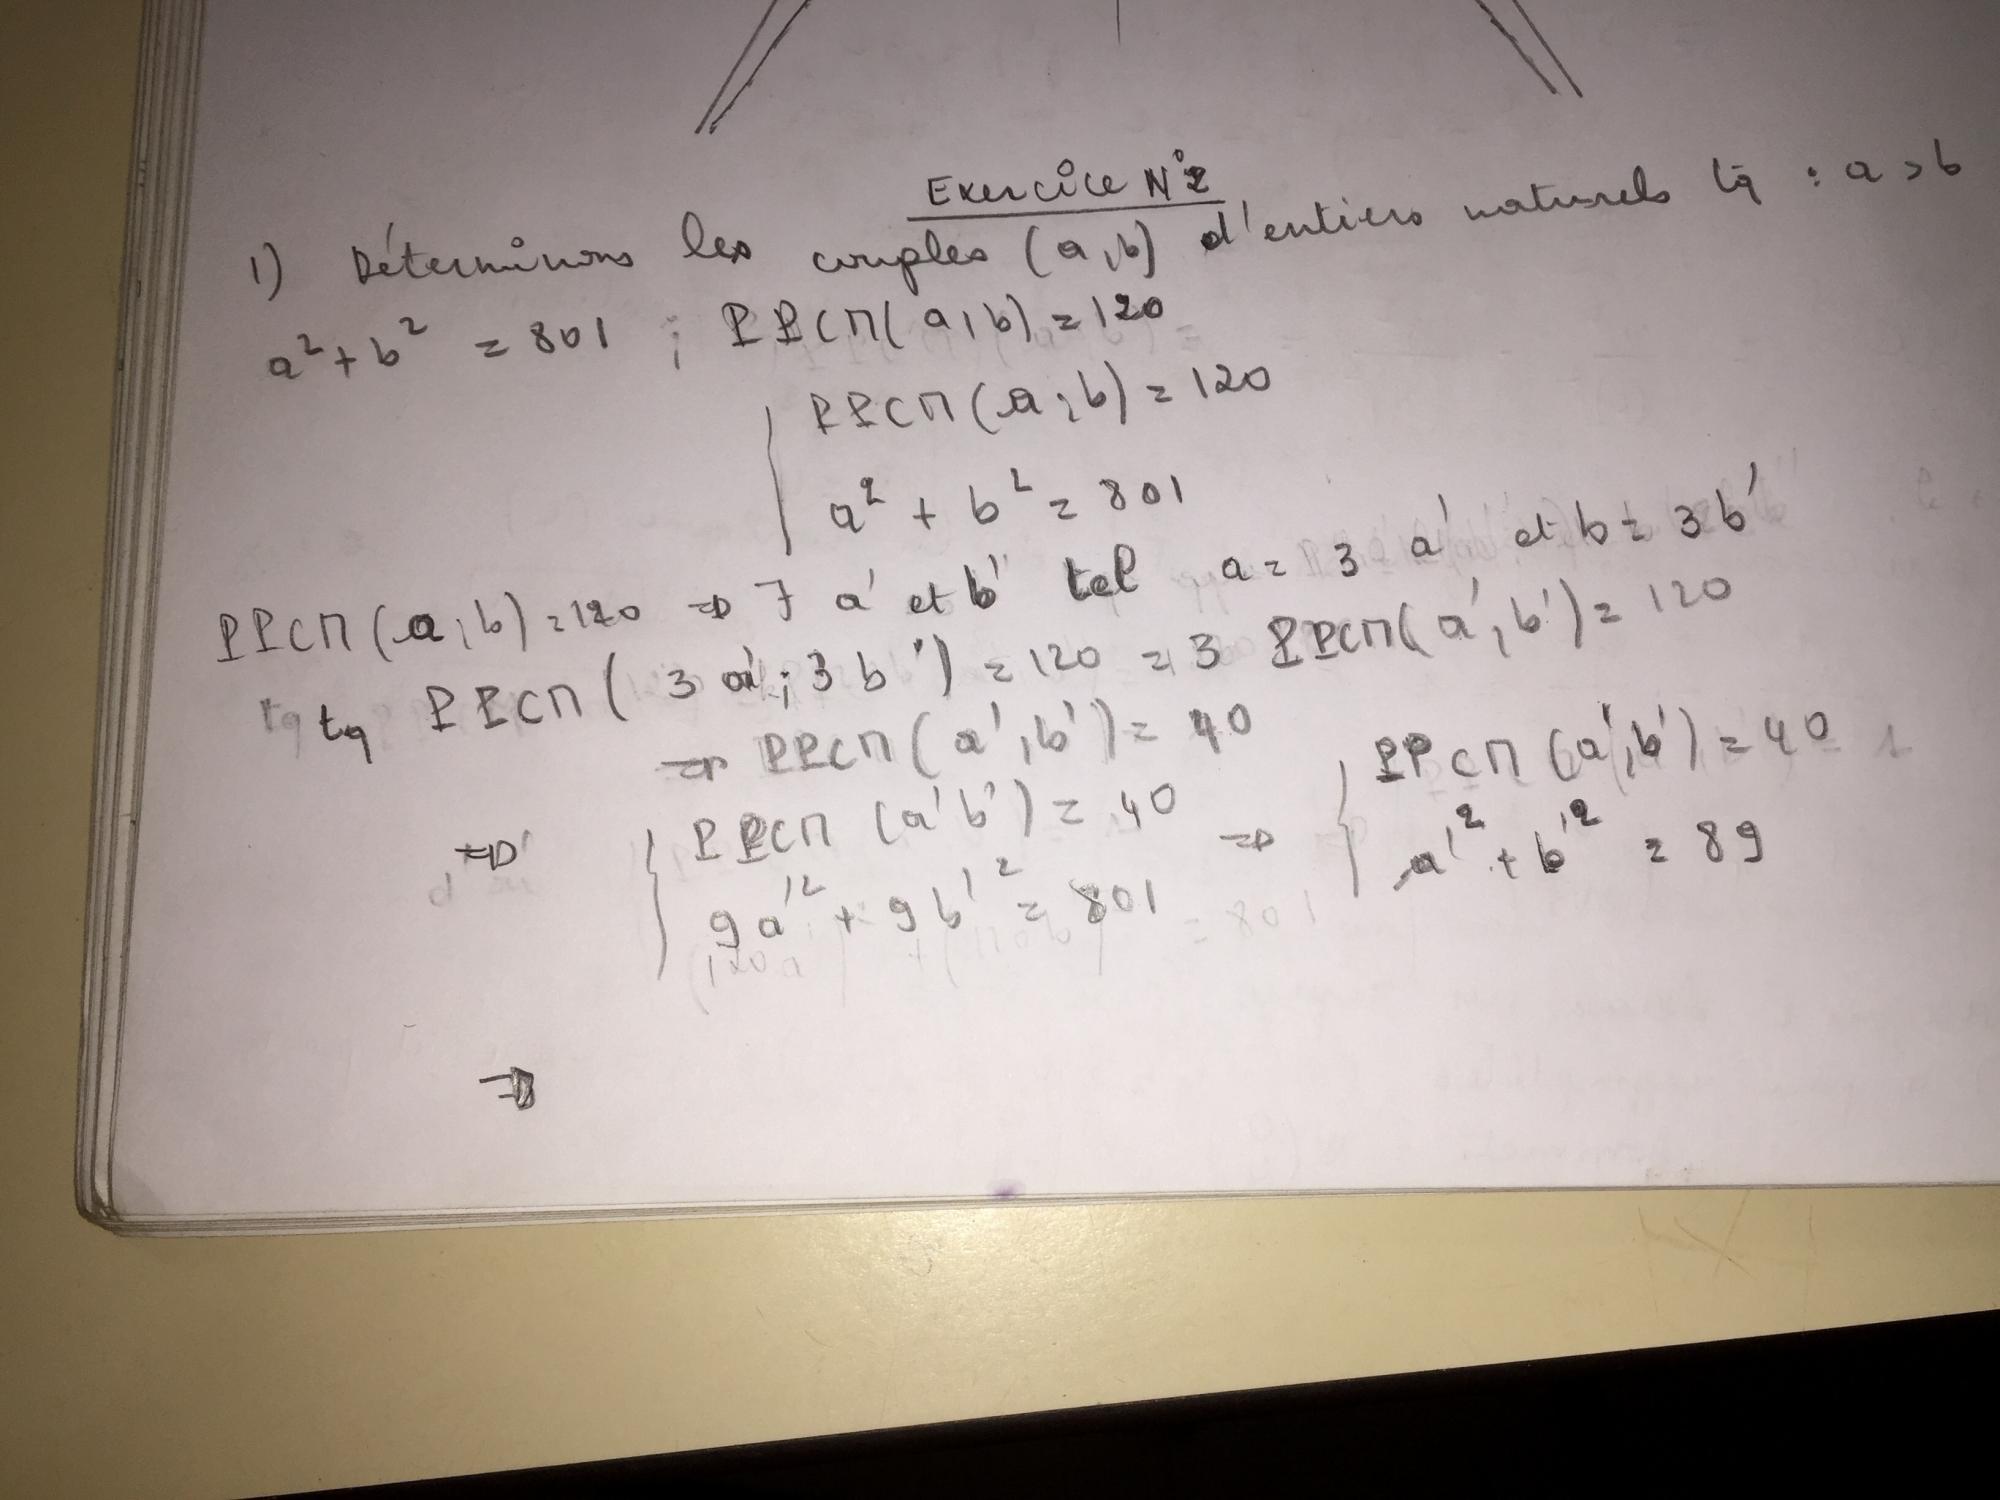 Exercice N°2
1) Déterminons les couples (a,b) d'entiers naturels tq : a > b
a² + b² = 801 ; PPCM(a,b) = 120
PPCM(a;b) = 120
a² + b² = 801
PPCM(a,b) = 120 => ∃ a' et b' tel a = 3 a' et b = 3b'
tq PPCM( 3 a'; 3 b') = 120 = 3 PPCM(a',b') = 120
=> PPCM(a',b') = 40
=> { PPCM (a'b') = 40 => { PPCM (a',b') = 40
9a'² + 9b'² = 801 a'² + b'² = 89
=>